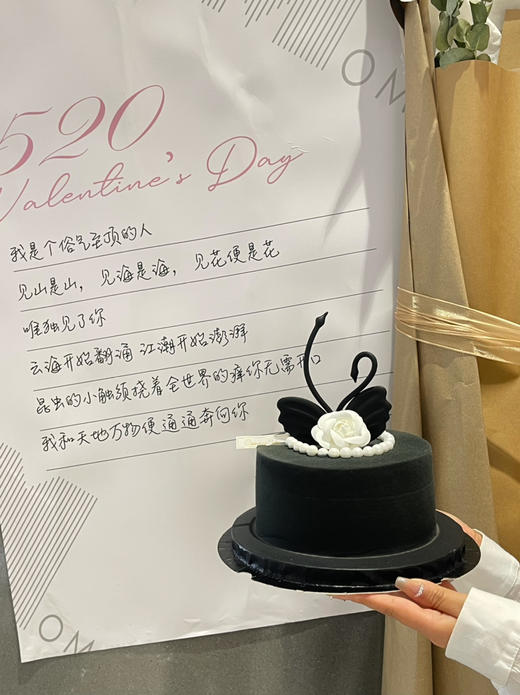 OM
520
Valentine's Day
我是个俗气至顶的人
见山是山，见海是海，见花便是花
唯独见了你
云海开始翻涌 江潮开始澎湃
昆虫的小触须挠着全世界的痒你无需开口
我和天地万物便通通奔向你
OM